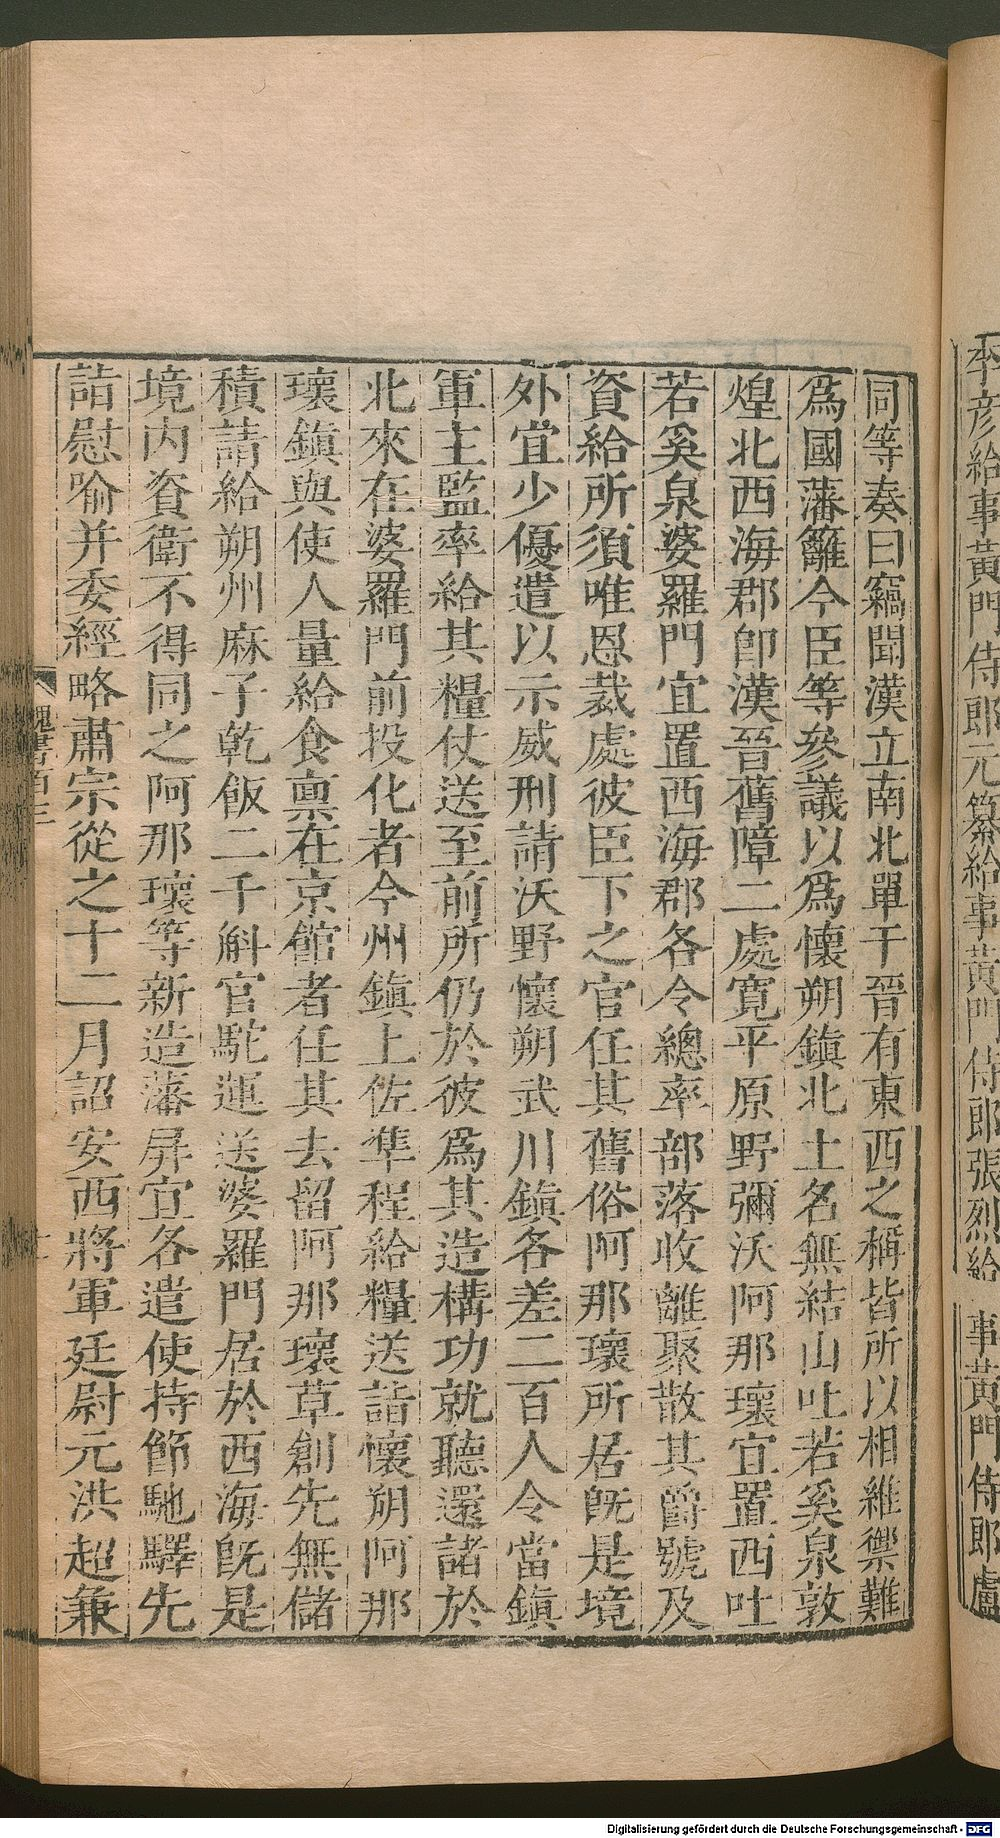 李彦給事黃門侍郎元纂給事黃門侍郎張烈給事黃門侍郎盧
同等奏曰竊聞漢立南北單于晉有東西之稱皆所以相維禦難
爲國藩籬今臣等參議以爲懷朔鎮北土名無結山吐若奚泉敦
煌北西海郡卽漢晉舊障二處寬平原野彌沃阿那瓌宜置西吐
若奚泉婆羅門宜置西海郡各令總率部落收離聚散其爵號及
資給所須唯恩裁處彼臣下之官任其舊俗阿那瓌所居旣是境
外宜少優遣以示威刑請沃野懷朔武川鎮各差二百人令當鎮
軍主監率給其糧仗送至前所仍於彼爲其造構功就聽還諸於
北來在婆羅門前投化者令州鎮上佐準程給糧送詣懷朔阿那
瓌鎮與使人量給食禀在京館者任其去留阿那瓌草創先無儲
積請給朔州麻子乾飯二千斛官駝運送婆羅門居於西海旣是
境內資衛不得同之阿那瓌等新造藩屏宜各遣使持節馳驛先
詣慰喻并委經略肅宗從之十二月詔安西將軍廷尉元洪超兼
魏書百三
Digitalisierung gefördert durch die Deutsche Forschungsgemeinschaft - DFG